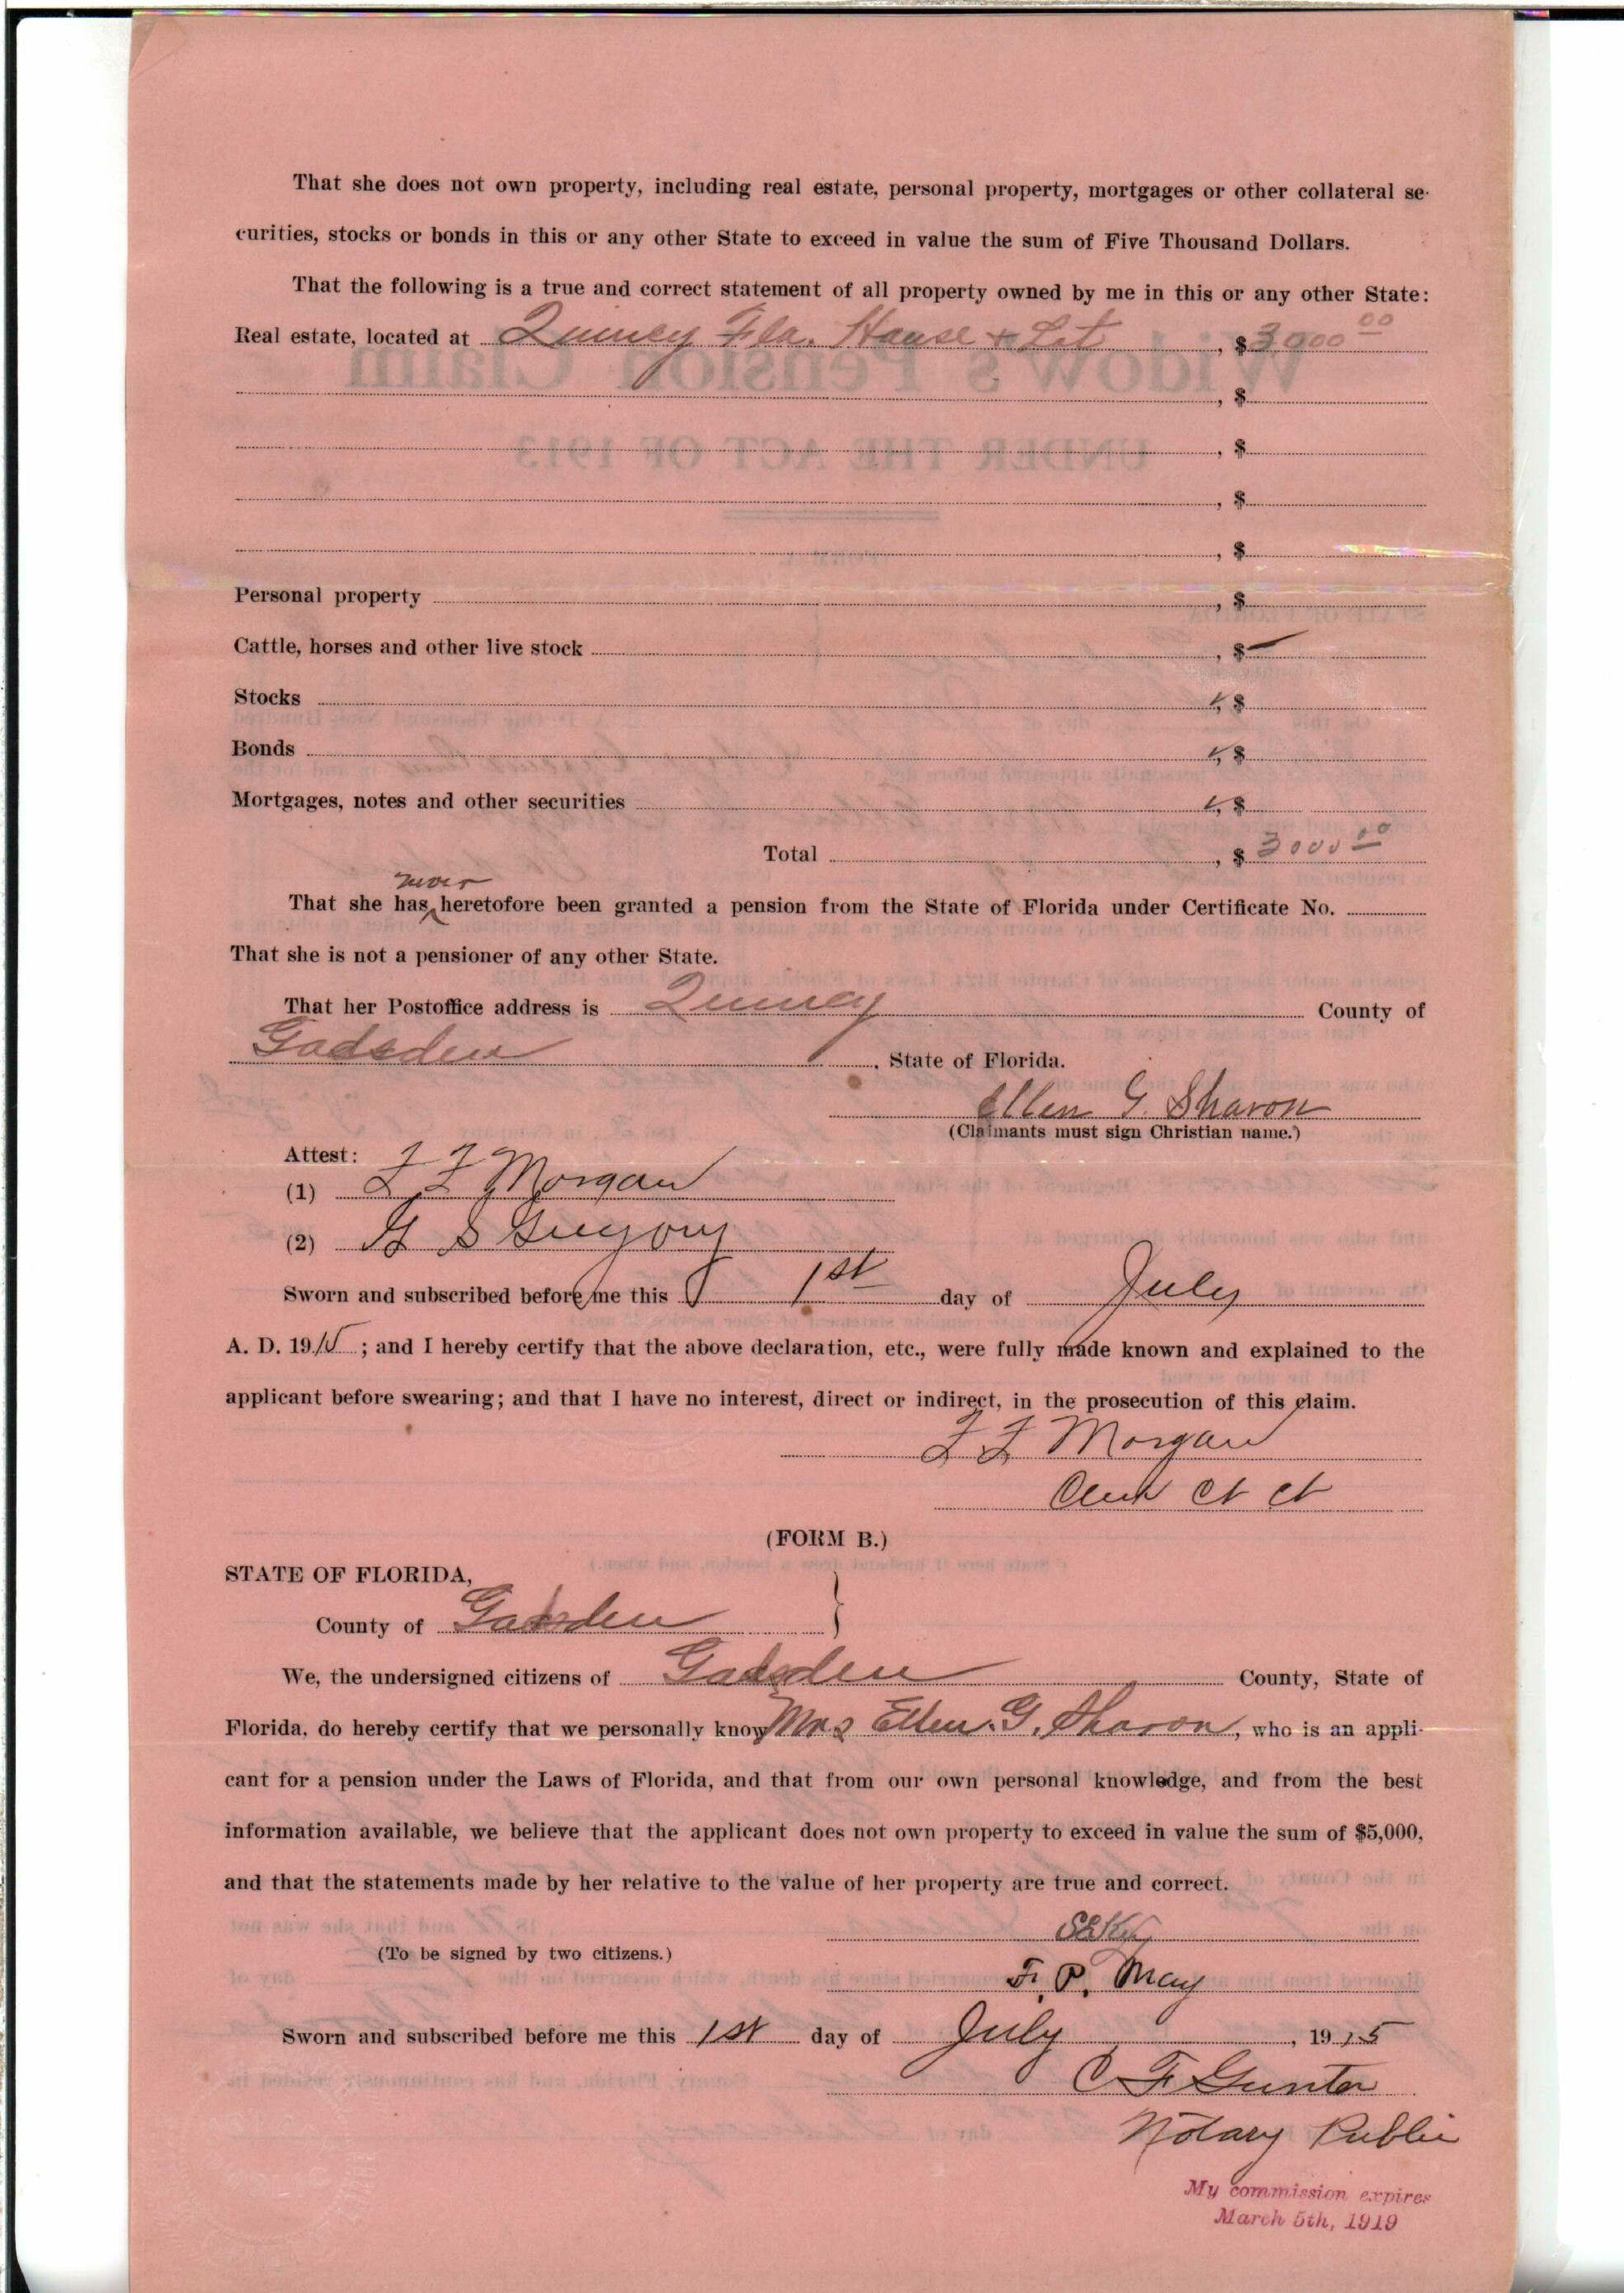 That she does not own property, including real estate, personal property, mortgages or other collateral se-
curities, stocks or bonds in this or any other State to exceed in value the sum of Five Thousand Dollars.
That the following is a true and correct statement of all property owned by me in this or any other State:
Real estate, located at Quincy Fla. House + Lot, $3000 00
, $
, $
, $
, $
Personal property , $
Cattle, horses and other live stock , $ —
Stocks , $
Bonds , $
Mortgages, notes and other securities , $
Total , $ 3000 00
never
That she has heretofore been granted a pension from the State of Florida under Certificate No.
That she is not a pensioner of any other State.
That her Postoffice address is Quincy County of
Gadsden, State of Florida.
Ellen G. Sharon
(Claimants must sign Christian name.)
Attest:
(1) F F Morgan
(2) Gregory
Sworn and subscribed before me this 1st day of July
A. D. 1915; and I hereby certify that the above declaration, etc., were fully made known and explained to the
applicant before swearing; and that I have no interest, direct or indirect, in the prosecution of this claim.
F F Morgan
Clerk Ct Ct
(FORM B.)
STATE OF FLORIDA,
County of Gadsden }
We, the undersigned citizens of Gadsden County, State of
Florida, do hereby certify that we personally know Mrs Ellen. G. Sharon, who is an appli-
cant for a pension under the Laws of Florida, and that from our own personal knowledge, and from the best
information available, we believe that the applicant does not own property to exceed in value the sum of $5,000,
and that the statements made by her relative to the value of her property are true and correct.
(To be signed by two citizens.)
F. P. May
Sworn and subscribed before me this 1st day of July, 1915
C F Gunter
Notary Public
My commission expires
March 5th, 1919